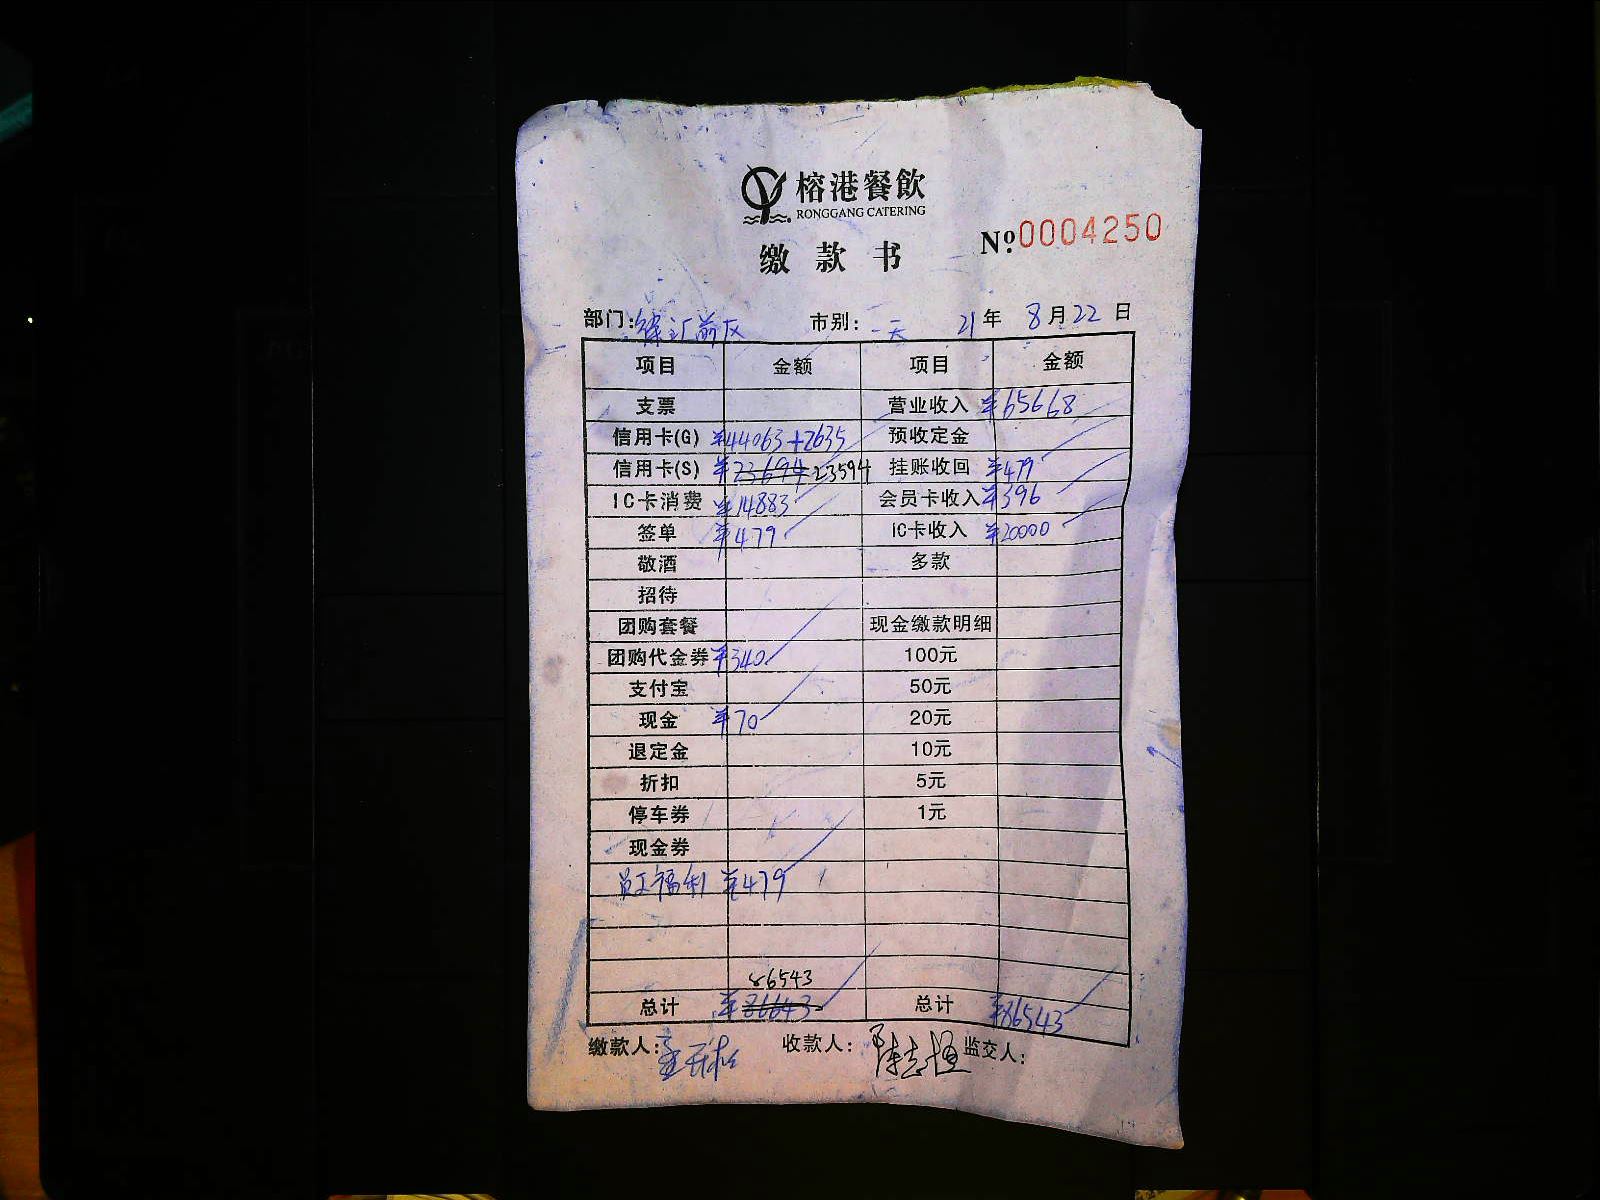 榕港餐飲
RONGGANG CATERING
缴款书
№ 0004250
部门:徐汇前区 市别: 天 21年 8月22日
项目 金额 项目 金额
支票 营业收入 ¥65668
信用卡(G) ¥44063+2635 预收定金
信用卡(S) ¥23694 23594 挂账收回 ¥479
IC卡消费 ¥14883 会员卡收入 ¥396
签单 ¥479 IC卡收入 ¥20000
敬酒 多款
招待
团购套餐 现金缴款明细
团购代金券 ¥340 100元
支付宝 50元
现金 ¥70 20元
退定金 10元
折扣 5元
停车券 1元
现金券
员工福利 ¥479
86543
总计 ¥86643 总计 ¥86543
缴款人: 收款人: 监交人: